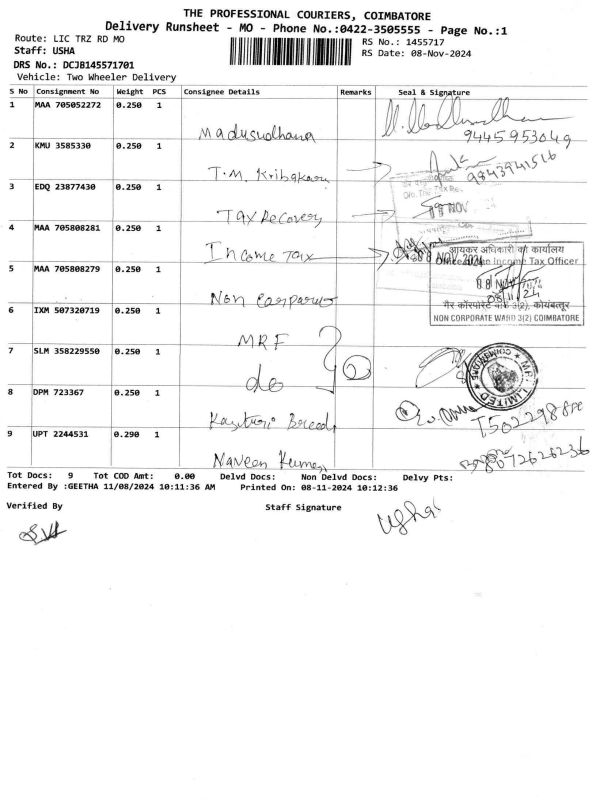 THE PROFESSIONAL COURIERS, COIMBATORE
Delivery Runsheet - MO - Phone No.:0422-3505555 - Page No.:1
Route: LIC TRZ RD MO
RS No.: 1455717
Staff: USHA
RS Date: 08-Nov-2024
DRS No.: DCJB145571701
Vehicle: Two Wheeler Delivery
S No Consignment No Weight PCS Consignee Details Remarks Seal & Signature
1 MAA 705052272 0.250 1
Madusudhana
9445953049
2 KMU 3585330 0.250 1
T.M.
9843941516
3 EDQ 23877430 0.250 1
Tax Recovery
NOV
4 MAA 705808281 0.250 1
Income Tax
08 NOV 2024
आयकर अधिकारी का कार्यालय
Office of the Income Tax Officer
5 MAA 705808279 0.250 1
Non
08/11/24
गैर कॉरपोरेट वार्ड 3(2), कोयंबत्तूर
NON CORPORATE WARD 3(2) COIMBATORE
6 IXM 507320719 0.250 1
MRF
7 SLM 358229550 0.250 1
do
MRF LIMITED
COIMBATORE
8 DPM 723367 0.250 1
9 UPT 2244531 0.290 1
Naveen Kumar
8072626236
Tot Docs: 9 Tot COD Amt: 0.00 Delvd Docs: Non Delvd Docs: Delvy Pts:
Entered By :GEETHA 11/08/2024 10:11:36 AM Printed On: 08-11-2024 10:12:36
Verified By
Staff Signature
Usha